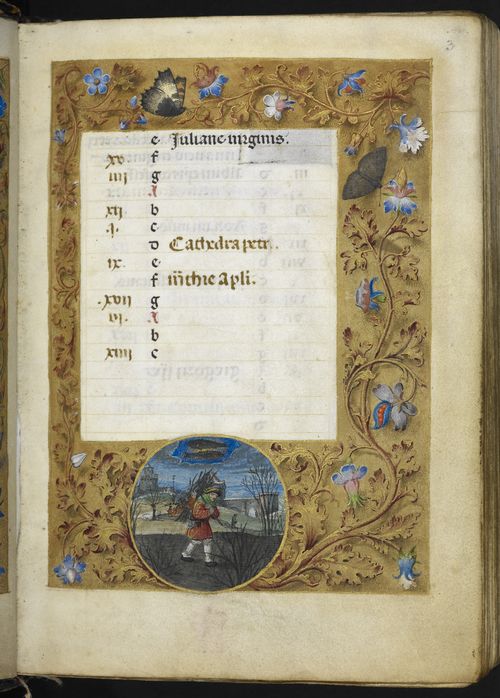 3
e Juliane virginis.
xv. f
iiij. g
A
xij. b
.j. c
d Cathedra petri.
ix. e
f m̄thie apli.
.xvij g
vj. A
b
xiiij c